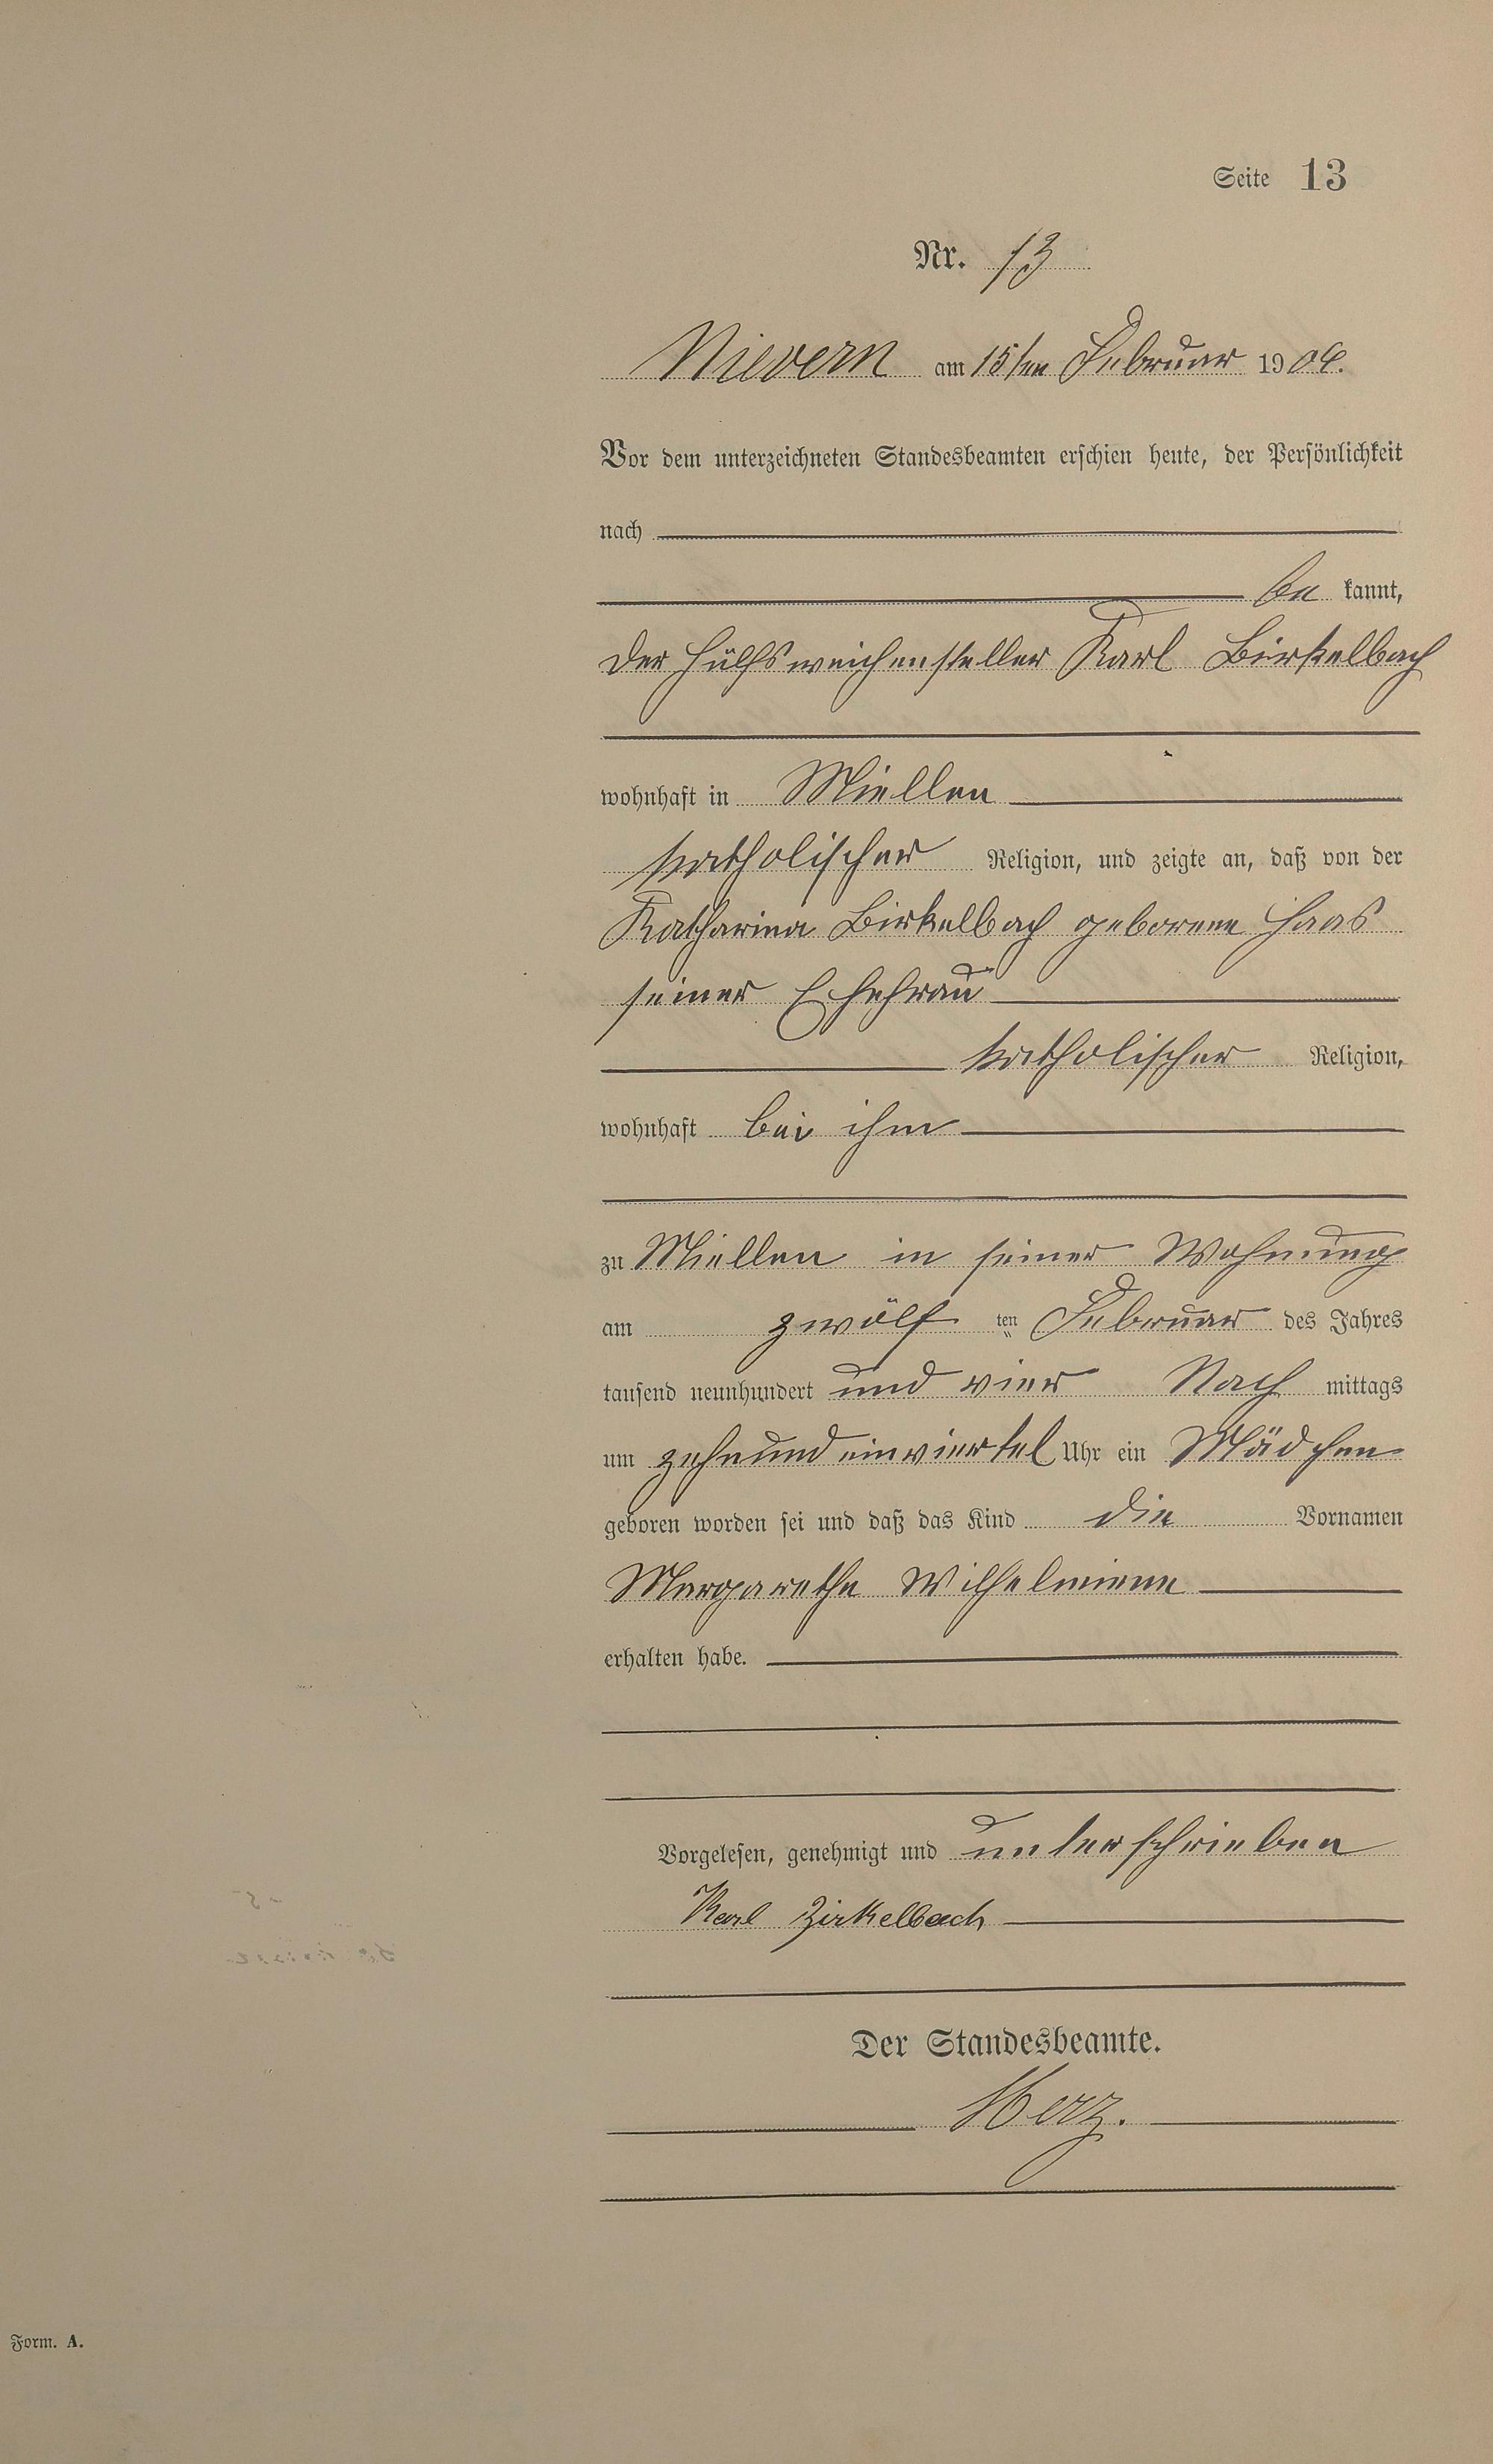 Seite 13
Nr. 13
Nievern am 15ten Februar 1904.
Vor dem unterzeichneten Standesbeamten erschien heute, der Persönlichkeit
nach
be kannt,
der Hülfsweichensteller Karl Birkelbach
wohnhaft in Miellen
katholischer Religion, und zeigte an, daß von der
Katharina Birkelbach geborene Haas
seiner Ehefrau
katholischer Religion,
wohnhaft bei ihm
zu Miellen in seiner Wohnung
am zwölf ten Februar des Jahres
tausend neunhundert und vier Nach mittags
um zehnundeinviertel Uhr ein Mädchen
geboren worden sei und daß das Kind die Vornamen
Margarethe Wilhelmiene
erhalten habe.
Vorgelesen, genehmigt und unterschrieben
Karl Birkelbach
Der Standesbeamte.
Herz.
Form. A.